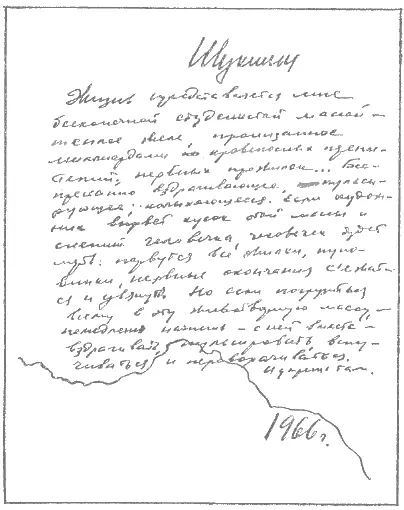 Шукшин
Жизнь представляется мне
бесконечной студенистой массой —
теплое желе, пронизанное
миллиардами кровеносных
нервных прожилок... Бес-
престанно вздрагивающее, пульси-
рующее, колыхающееся. Если худож-
ник вырвет кусок этой массы и
слепит человечка, человечек будет
мертв: порвутся все жилки, пупо-
винки, нервные окончания съежат-
ся и увянут. Но если погрузиться
всему в эту животворную массу, —
немедленно начнешь — с ней вместе —
вздрагивать, пульсировать, вспу-
чиваться и переворачиваться.
И умрешь там.
1966 г.